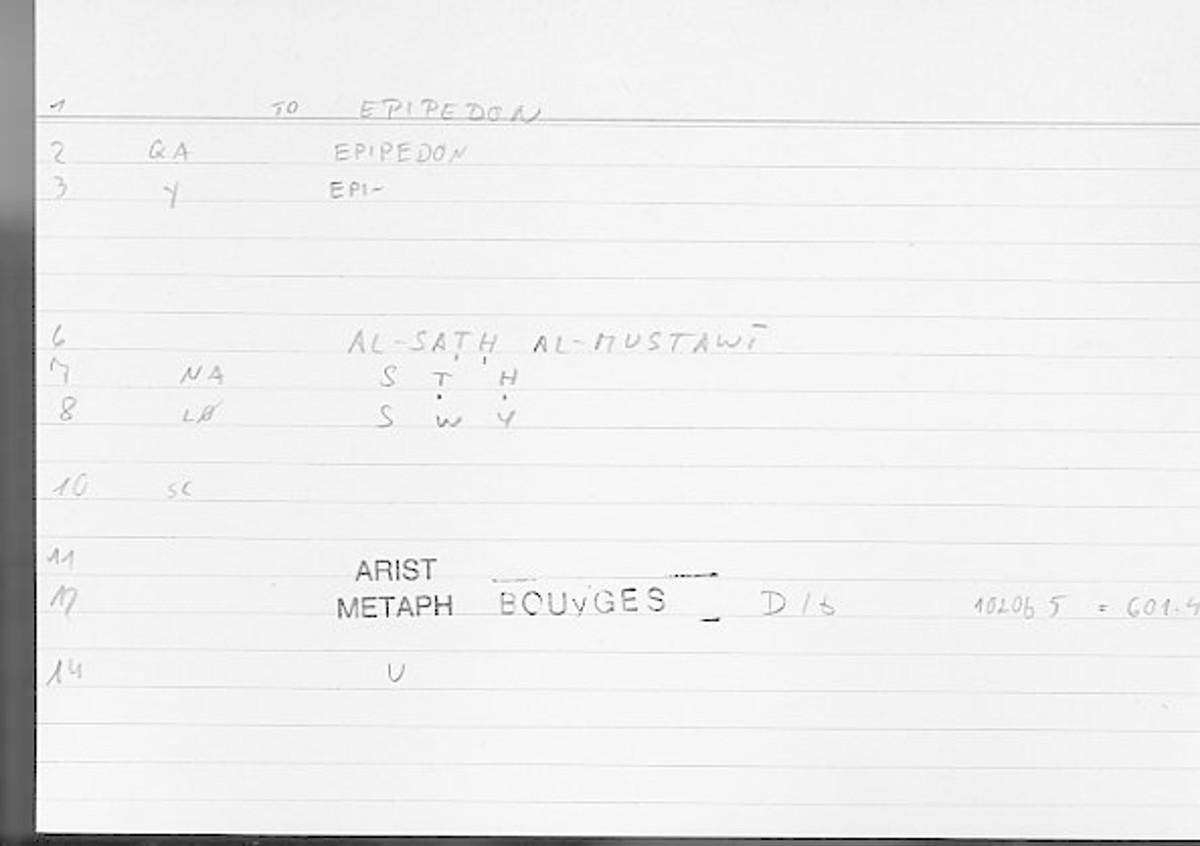 1 TO EPIPEDON
2 QA EPIPEDON
3 Y EPI-
6 AL-SAṬḤ AL-MUSTAWĪ
7 NA S Ṭ Ḥ
8 LØ S W Y
10 SC
11 ARIST
12 METAPH BOUYGES D 16 1020b 5 = 601.4
14 U